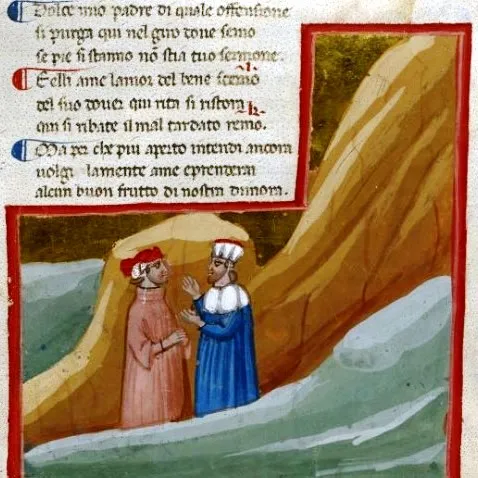 Dolce mio padre di quale offensione
si purga qui nel giro doue semo
se pie si stanno nõ stia tuo sermone.
Et elli ame lamor del bene scemo
del suo douer qui rita si ristora
qui si ribate il mal tardato remo.
Ma per che piu aperto intendi ancora
uolgi lamente ame eprenderai
alcun buon frutto di nostra dimora.